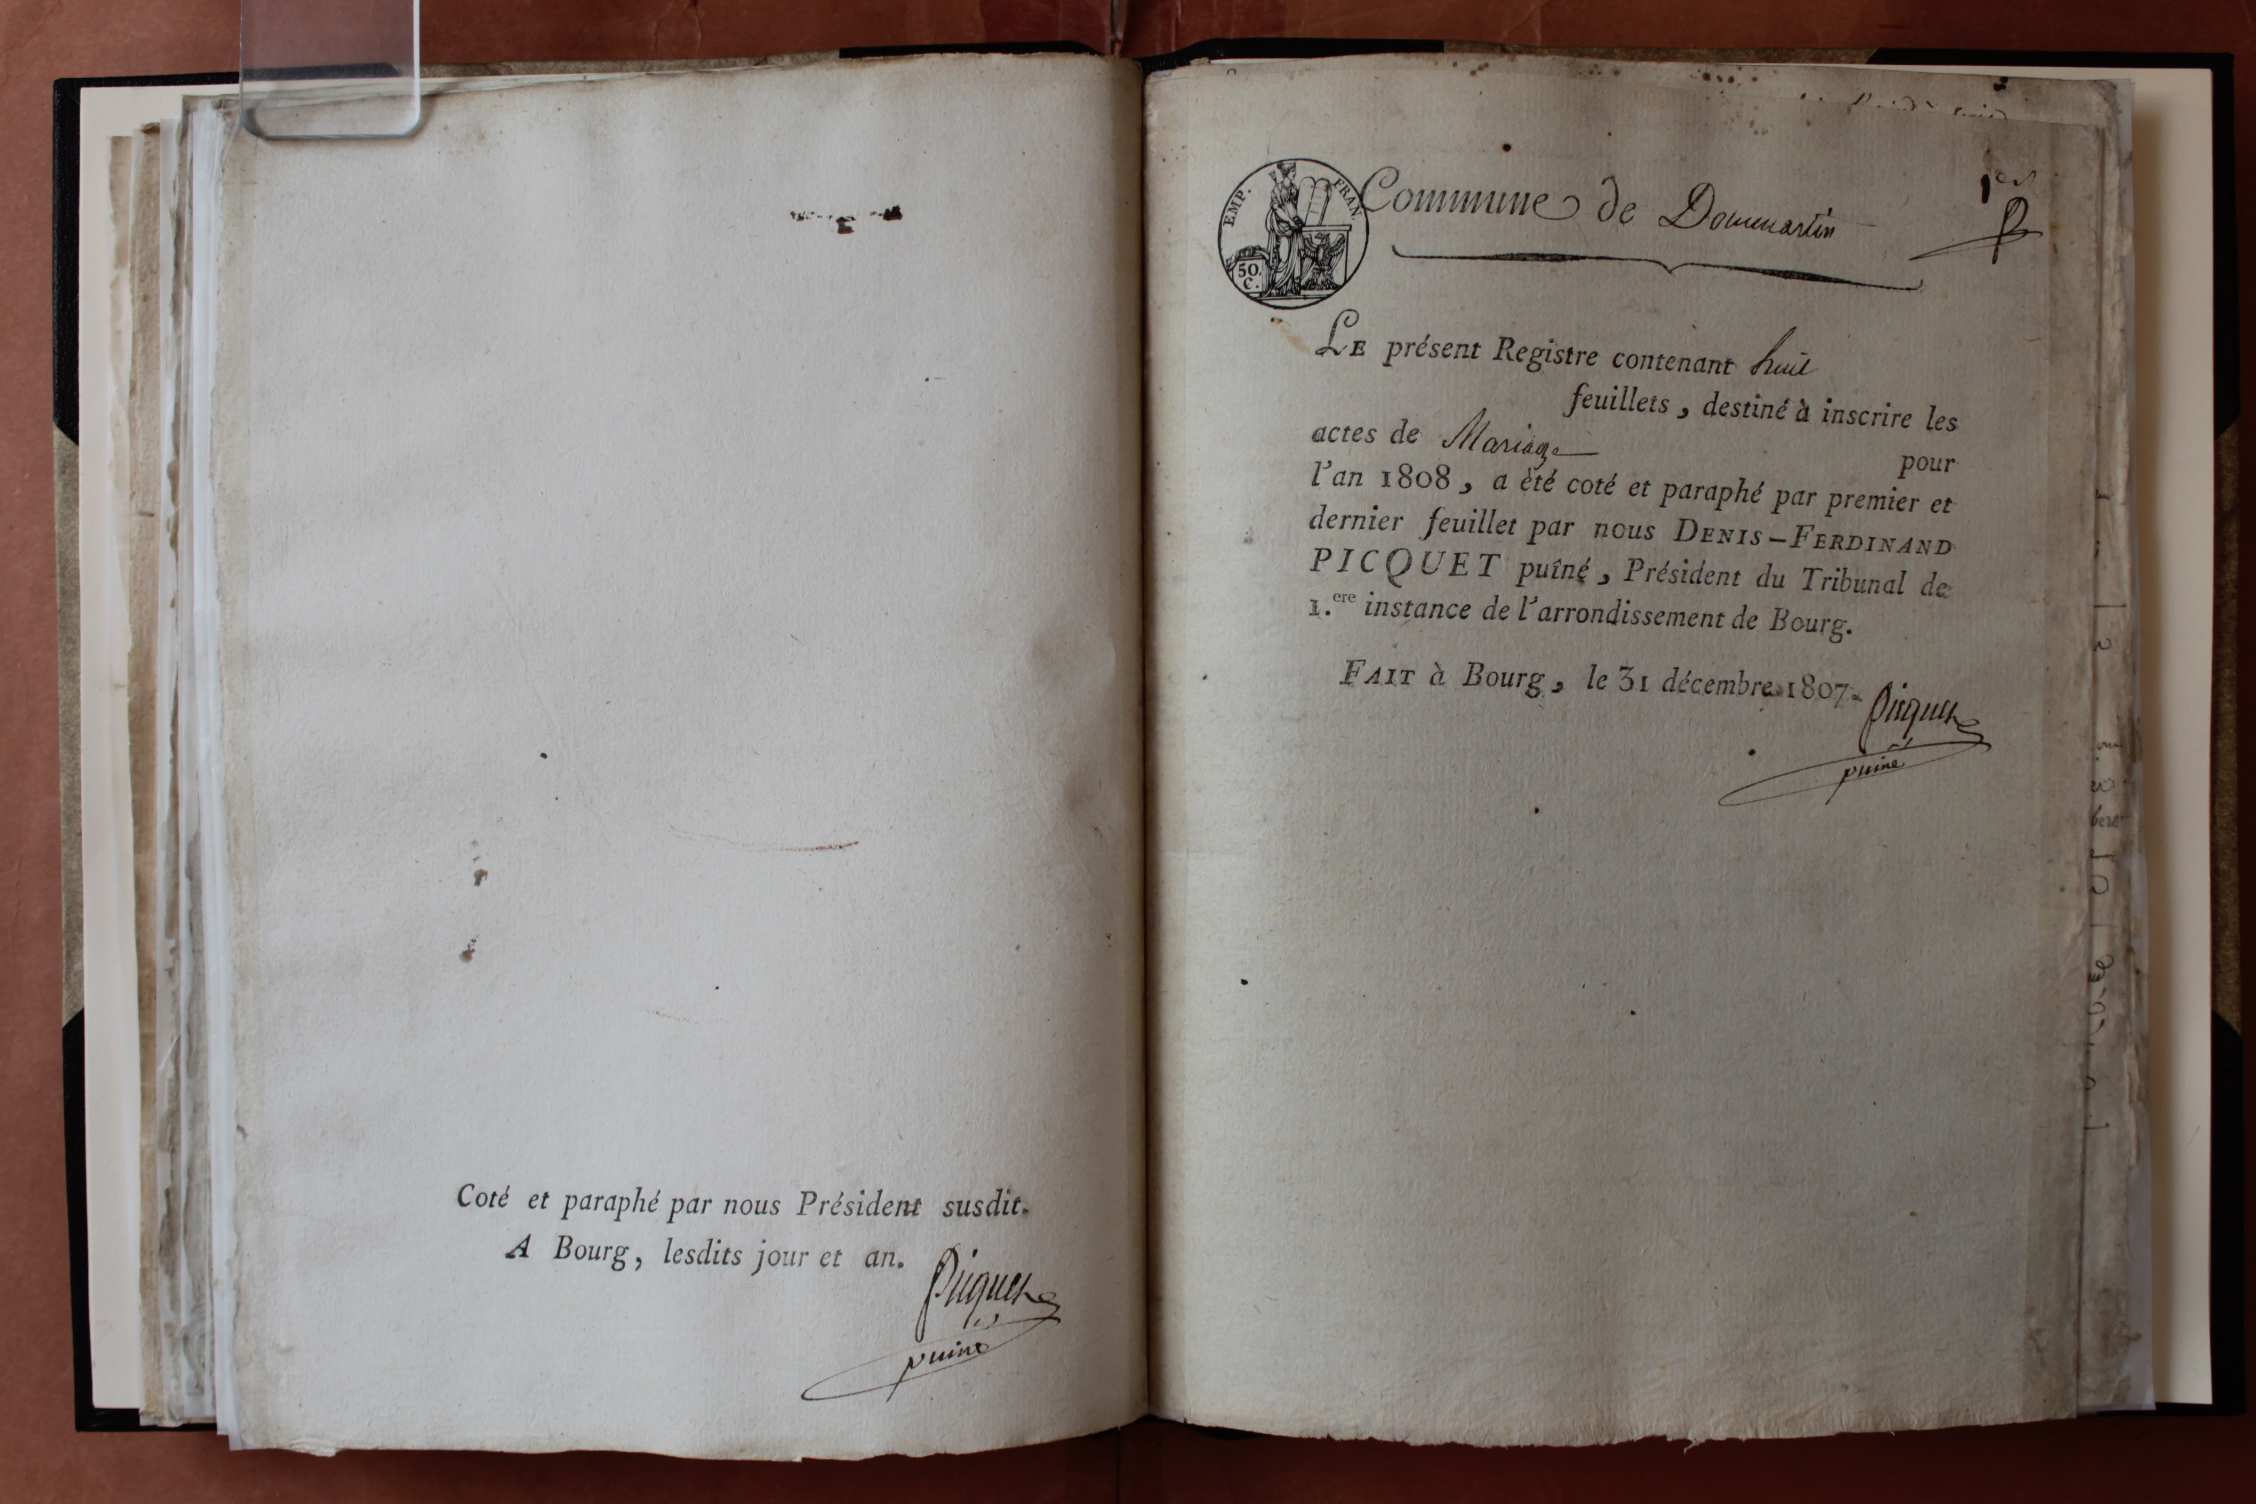 Coté et paraphé par nous Président susdit.
A Bourg, lesdits jour et an.
Picquet
puiné
EMP. FRAN.
50.
C.
Commune de Dommartin
1er
LE présent Registre contenant huit
feuillets, destiné à inscrire les
actes de Mariage pour
l'an 1808, a été coté et paraphé par premier et
dernier feuillet par nous DENIS-FERDINAND
PICQUET puîné, Président du Tribunal de
1.ere instance de l'arrondissement de Bourg.
FAIT à Bourg, le 31 décembre 1807.
Picquet
puiné